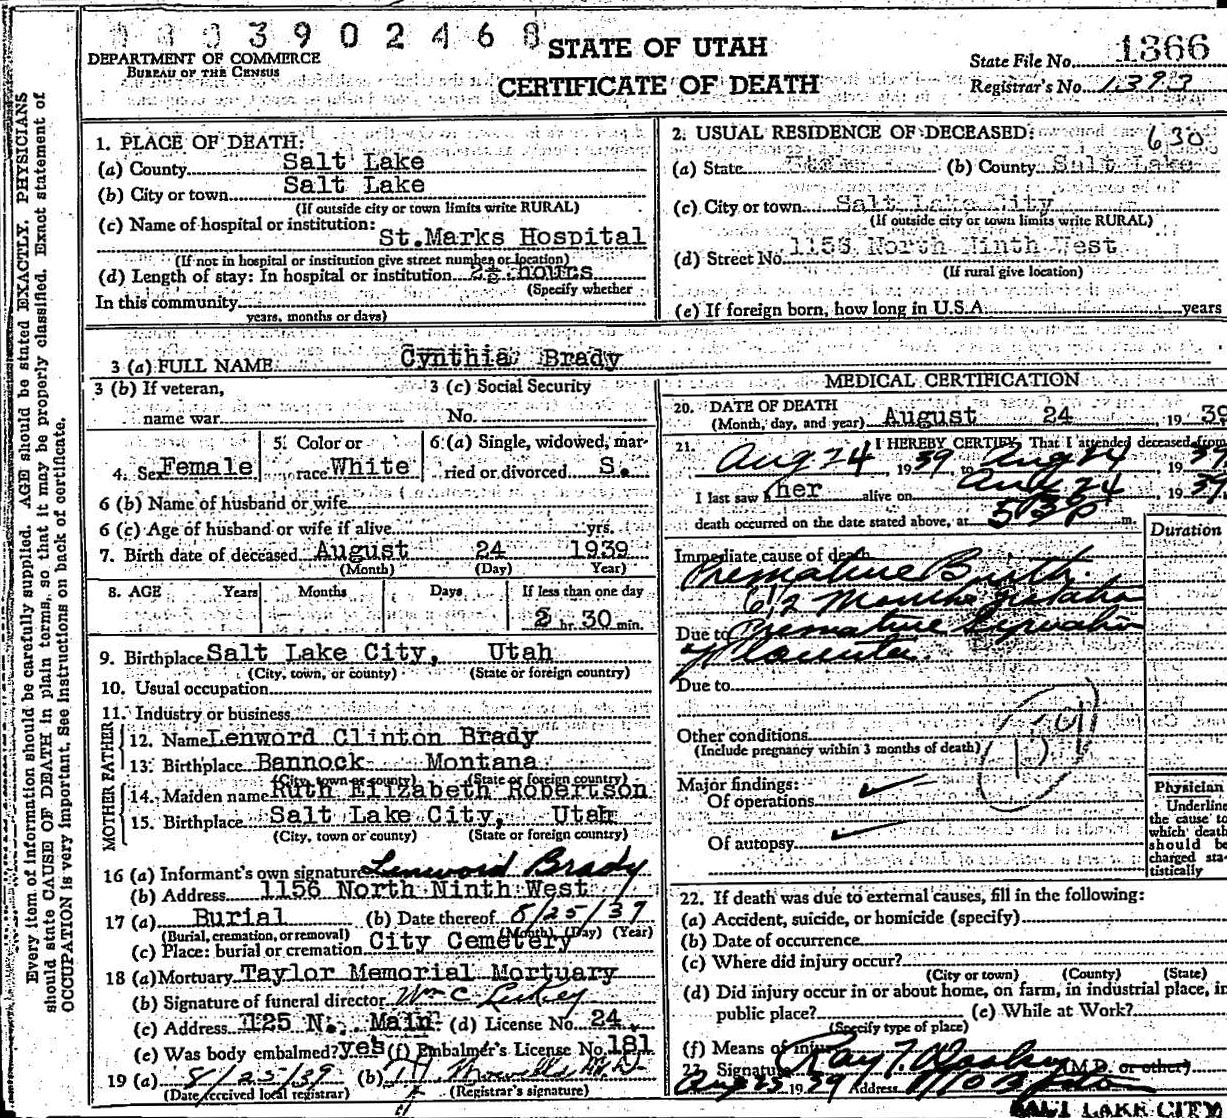 3 9 0 2 4 6 8
STATE OF UTAH
CERTIFICATE OF DEATH
DEPARTMENT OF COMMERCE
BUREAU OF THE CENSUS
State File No. 1366
Registrar's No. 1393
Every item of information should be carefully supplied. AGE should be stated EXACTLY. PHYSICIANS
should state CAUSE OF DEATH in plain terms, so that it may be properly classified. Exact statement of
OCCUPATION is very important. See instructions on back of certificate.
1. PLACE OF DEATH:
(a) County Salt Lake
(b) City or town Salt Lake
(If outside city or town limits write RURAL)
(c) Name of hospital or institution:
St.Marks Hospital
(If not in hospital or institution give street number or location)
(d) Length of stay: In hospital or institution 2½ hours
(Specify whether
In this community
years, months or days)
2. USUAL RESIDENCE OF DECEASED: 630
(a) State Utah (b) County Salt Lake
(c) City or town Salt Lake City
(If outside city or town limits write RURAL)
(d) Street No. 1156 North Ninth West
(If rural give location)
(e) If foreign born, how long in U.S.A. years
3 (a) FULL NAME Cynthia Brady
3 (b) If veteran,
name war
3 (c) Social Security
No.
4. Sex Female
5. Color or
race White
6 (a) Single, widowed, mar-
ried or divorced S.
6 (b) Name of husband or wife
6 (c) Age of husband or wife if alive yrs.
7. Birth date of deceased August 24 1939
(Month) (Day) Year)
8. AGE Years Months Days If less than one day
2 hr. 30 min.
9. Birthplace Salt Lake City, Utah
(City, town, or county) (State or foreign country)
10. Usual occupation
11. Industry or business
FATHER
12. Name Lenword Clinton Brady
13. Birthplace Bannock Montana
(City, town or county) (State or foreign country)
MOTHER
14. Maiden name Ruth Elizabeth Robertson
15. Birthplace Salt Lake City, Utah
(City, town or county) (State or foreign country)
16 (a) Informant's own signature Lenword Brady
(b) Address 1156 North Ninth West
17 (a) Burial (b) Date thereof 8/25/39
(Burial, cremation, or removal) (Month) (Day) (Year)
(c) Place: burial or cremation City Cemetery
18 (a) Mortuary Taylor Memorial Mortuary
(b) Signature of funeral director Wm C
(c) Address 125 N. Main (d) License No. 24
(e) Was body embalmed? yes (f) Embalmer's License No. 181
19 (a) 8/25/39 (b)
(Date received local registrar) (Registrar's signature)
MEDICAL CERTIFICATION
20. DATE OF DEATH
(Month, day, and year) August 24 , 19 39
21. I HEREBY CERTIFY, That I attended deceased from
Aug 24 , 19 39 to Aug 24 , 19 39
I last saw her alive on Aug 24 , 19 39
death occurred on the date stated above, at 5 30 p m.
Duration
Immediate cause of death
Premature Birth
6 1/2 Months gestation
Due to Premature Separation
of Placenta.
Due to
Other conditions
(Include pregnancy within 3 months of death)
Major findings:
Of operations
Of autopsy
Physician
Underline
the cause to
which death
should be
charged sta-
tistically
22. If death was due to external causes, fill in the following:
(a) Accident, suicide, or homicide (specify)
(b) Date of occurrence
(c) Where did injury occur?
(City or town) (County) (State)
(d) Did injury occur in or about home, on farm, in industrial place, in
public place? (e) While at Work?
(Specify type of place)
(f) Means of injury
23. Signature Ray T. (M.D. or other)
Aug 25 19 39 Address
SALT LAKE CITY